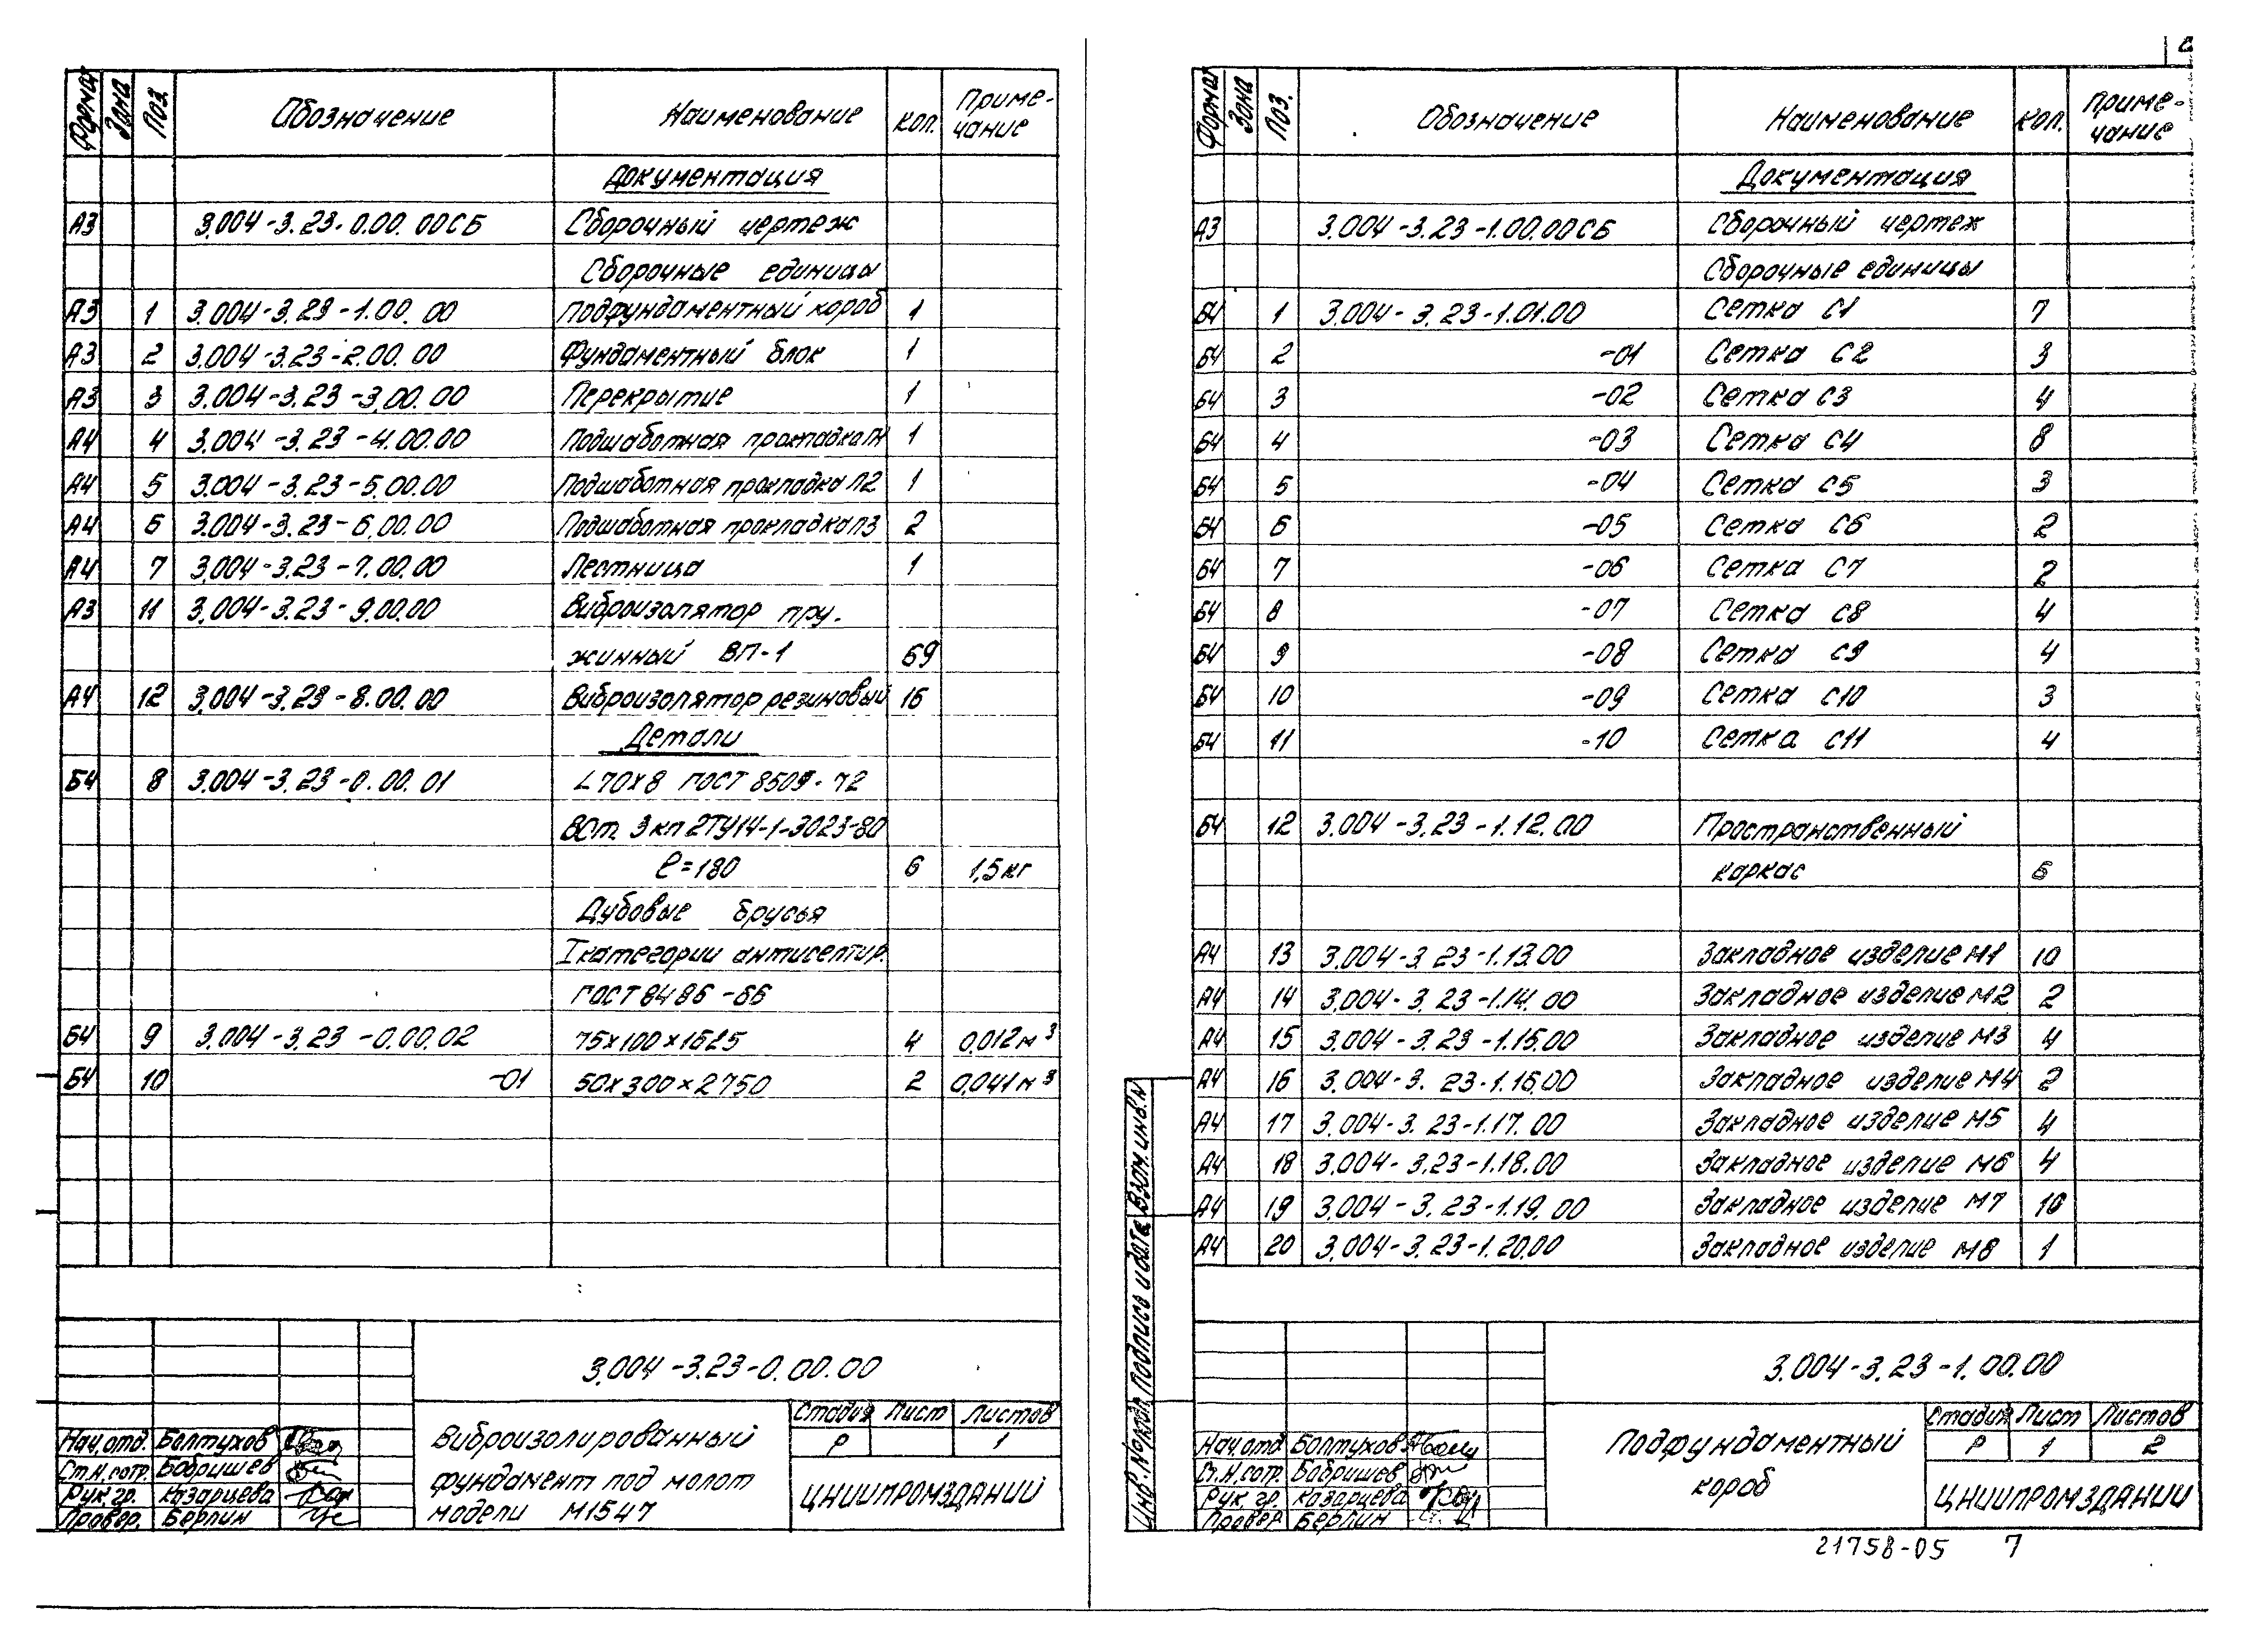 Формат Зона Поз. Обозначение Наименование Кол. Примечание
Документация
А3 3.004-3.23-0.00.00СБ Сборочный чертеж
Сборочные единицы
А3 1 3.004-3.23-1.00.00 Подфундаментный короб 1
А3 2 3.004-3.23-2.00.00 Фундаментный блок 1
А3 3 3.004-3.23-3.00.00 Перекрытие 1
А4 4 3.004-3.23-4.00.00 Подшаботная прокладка П1 1
А4 5 3.004-3.23-5.00.00 Подшаботная прокладка П2 1
А4 6 3.004-3.23-6.00.00 Подшаботная прокладка П3 2
А4 7 3.004-3.23-7.00.00 Лестница 1
А3 11 3.004-3.23-9.00.00 Виброизолятор пру-
жинный ВП-1 69
А4 12 3.004-3.23-8.00.00 Виброизолятор резиновый 16
Детали
Б4 8 3.004-3.23-0.00.01 L70х8 ГОСТ 8509-72
ВСт 3кп2ТУ14-1-3023-80
ℓ=180 6 1,5кг
Дубовые брусья
I категории антисептир.
ГОСТ 8486-66
Б4 9 3.004-3.23-0.00.02 75х100х1625 4 0,012м³
Б4 10 -01 50х300х2750 2 0,041м³
3.004-3.23-0.00.00
Виброизолированный
фундамент под молот
модели М1547
Стадия Лист Листов
Р 1
ЦНИИПРОМЗДАНИЙ
Нач.отд. Болтухов
Ст.н.сотр. Бобрышев
Рук.гр. Казарцева
Провер. Берлин
Формат Зона Поз. Обозначение Наименование Кол. Примечание
Документация
А3 3.004-3.23-1.00.00СБ Сборочный чертеж
Сборочные единицы
Б4 1 3.004-3.23-1.01.00 Сетка С1 7
Б4 2 -01 Сетка С2 3
Б4 3 -02 Сетка С3 4
Б4 4 -03 Сетка С4 8
Б4 5 -04 Сетка С5 3
Б4 6 -05 Сетка С6 2
Б4 7 -06 Сетка С7 2
Б4 8 -07 Сетка С8 4
Б4 9 -08 Сетка С9 4
Б4 10 -09 Сетка С10 3
Б4 11 -10 Сетка С11 4
Б4 12 3.004-3.23-1.12.00 Пространственный
каркас 6
А4 13 3.004-3.23-1.13.00 Закладное изделие М1 10
А4 14 3.004-3.23-1.14.00 Закладное изделие М2 2
А4 15 3.004-3.23-1.15.00 Закладное изделие М3 4
А4 16 3.004-3.23-1.16.00 Закладное изделие М4 2
А4 17 3.004-3.23-1.17.00 Закладное изделие М5 4
А4 18 3.004-3.23-1.18.00 Закладное изделие М6 4
А4 19 3.004-3.23-1.19.00 Закладное изделие М7 10
А4 20 3.004-3.23-1.20.00 Закладное изделие М8 1
Инв.№ подл. Подпись и дата Взам.инв.№
3.004-3.23-1.00.00
Подфундаментный
короб
Стадия Лист Листов
Р 1 2
ЦНИИПРОМЗДАНИЙ
Нач.отд. Болтухов
Ст.н.сотр. Бобрышев
Рук.гр. Казарцева
Провер. Берлин
21758-05 7